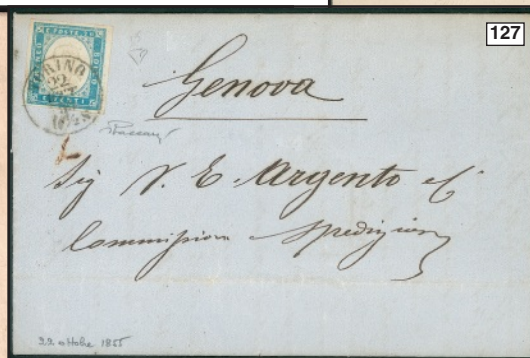 127
TORINO
22
Genova
Sig V. E. Argento e C
Commissione e Spedizione
22 ottobre 1855